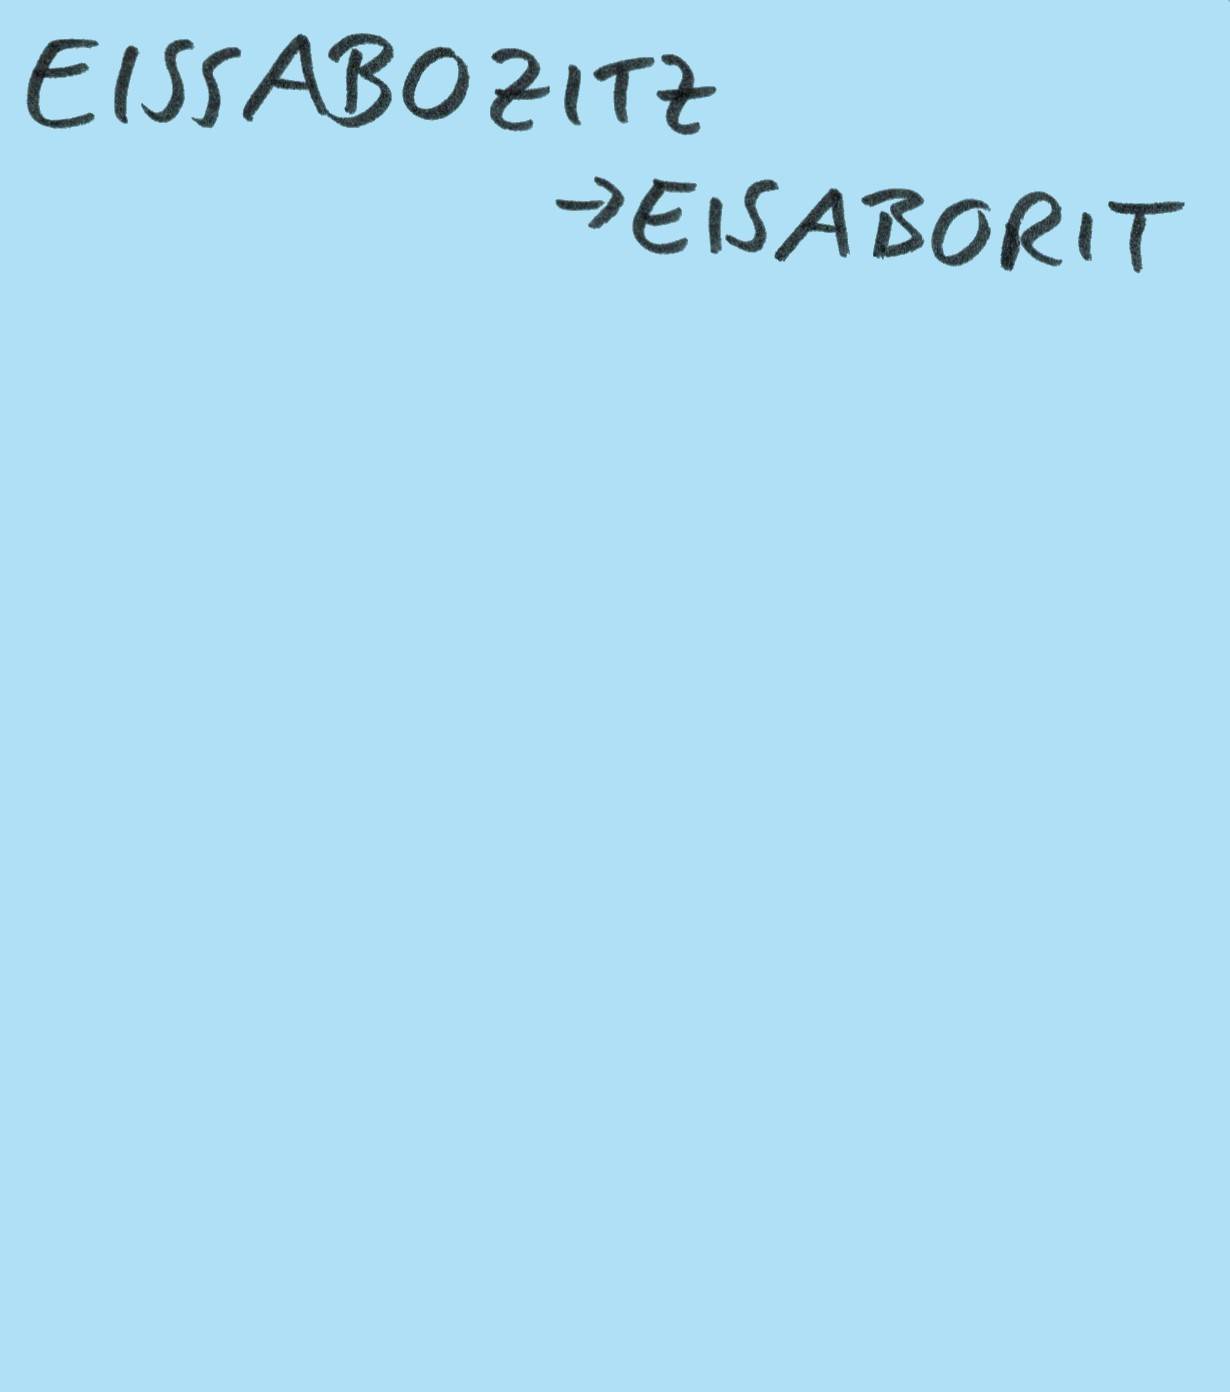 EISSABOZITZ
→EISABORIT